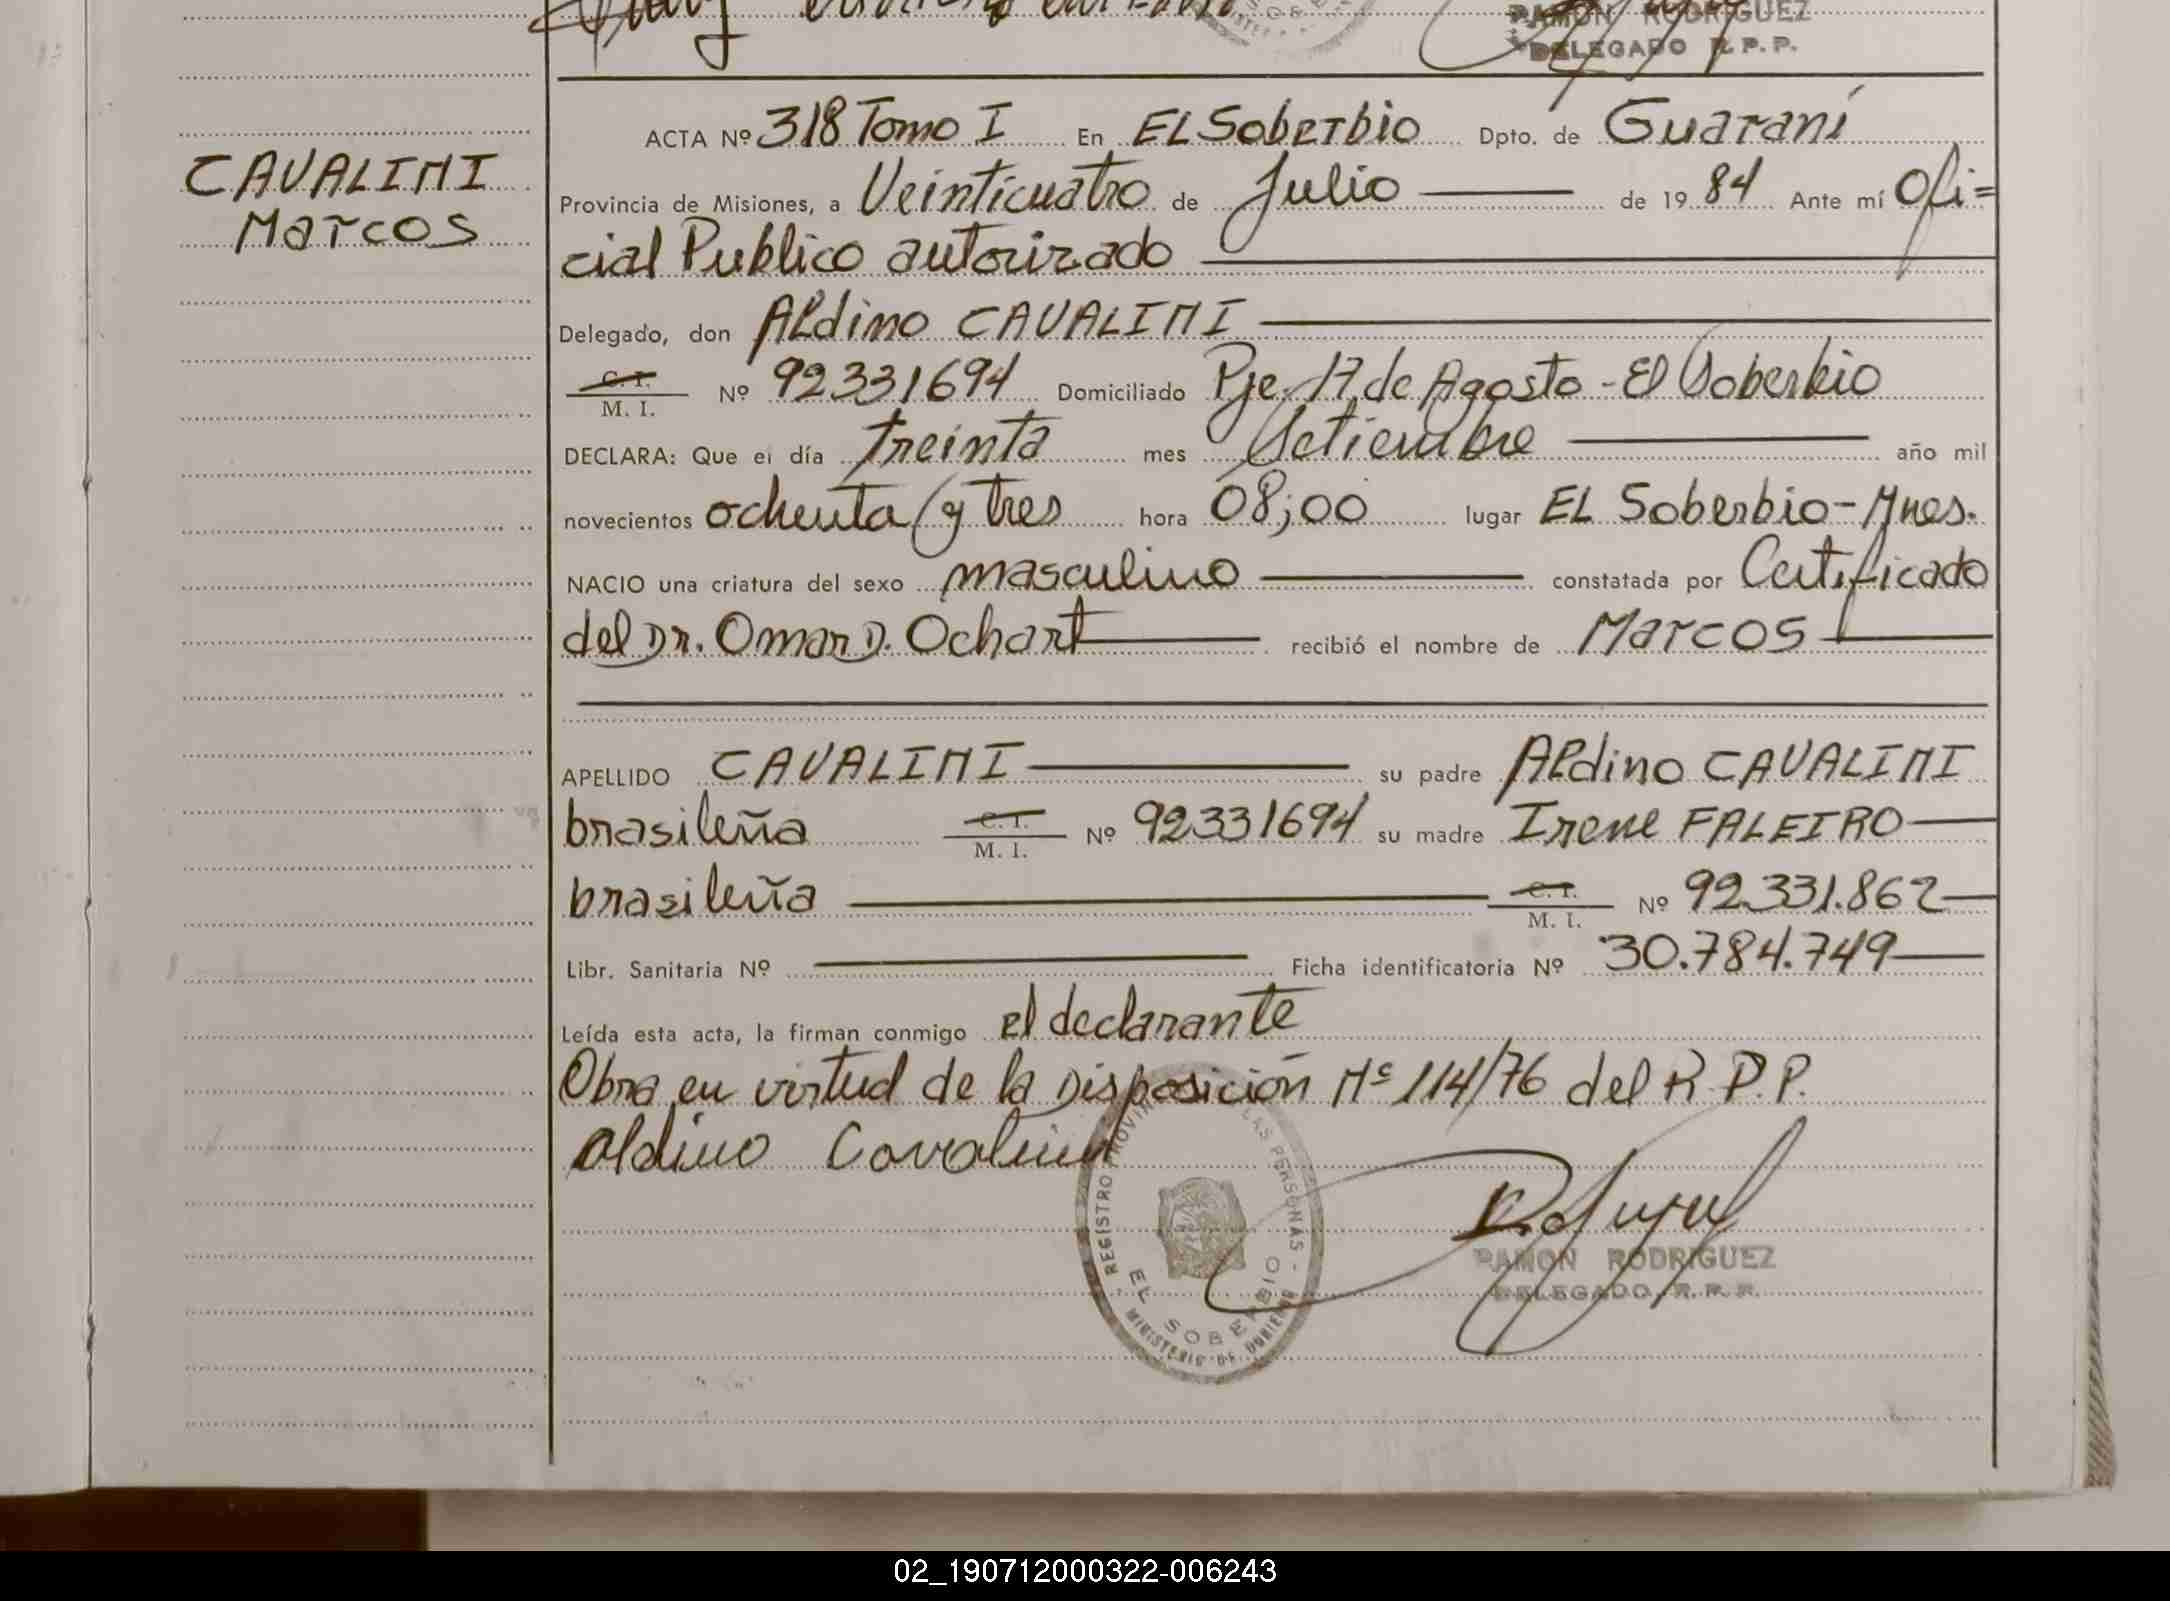 RAMON RODRIGUEZ
DELEGADO R.P.P.
CAVALINI
Marcos
ACTA Nº 318 Tomo I En EL Soberbio Dpto. de Guaraní
Provincia de Misiones, a Veinticuatro de Julio de 19 84 Ante mí Ofi=
cial Publico autorizado
Delegado, don Aldino CAVALINI
C. I.
M. I. Nº 92331694 Domiciliado Pje. 17 de Agosto - El Soberbio
DECLARA: Que el día treinta mes Setiembre año mil
novecientos ochenta y tres hora 08;00 lugar EL Soberbio - Mnes.
NACIO una criatura del sexo masculino constatada por Certificado
del Dr. Omar D. Ochart recibió el nombre de Marcos
APELLIDO CAVALINI su padre Aldino CAVALINI
brasileña C. I. M. I. Nº 92331694 su madre Irene FALEIRO
brasileña C. I. M. I. Nº 92.331.862
Libr. Sanitaria Nº Ficha identificatoria Nº 30.784.749
Leída esta acta, la firman conmigo el declarante
Obra en virtud de la Disposición Nº 114/76 del R.P.P.
Aldino Cavalini
REGISTRO PROVINCIAL DE LAS PERSONAS
EL SOBERBIO
MINISTERIO DE GOBIERNO
RAMON RODRIGUEZ
DELEGADO R.P.P.
02_190712000322-006243